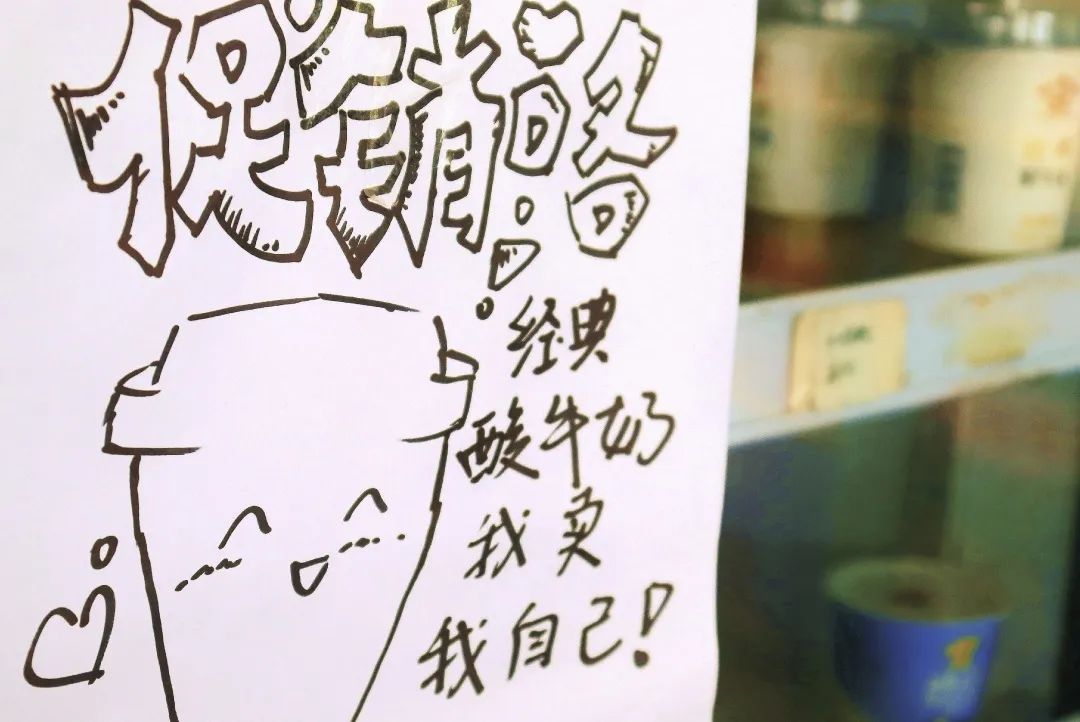 促销咯
经典
酸牛奶
我卖
我自己!